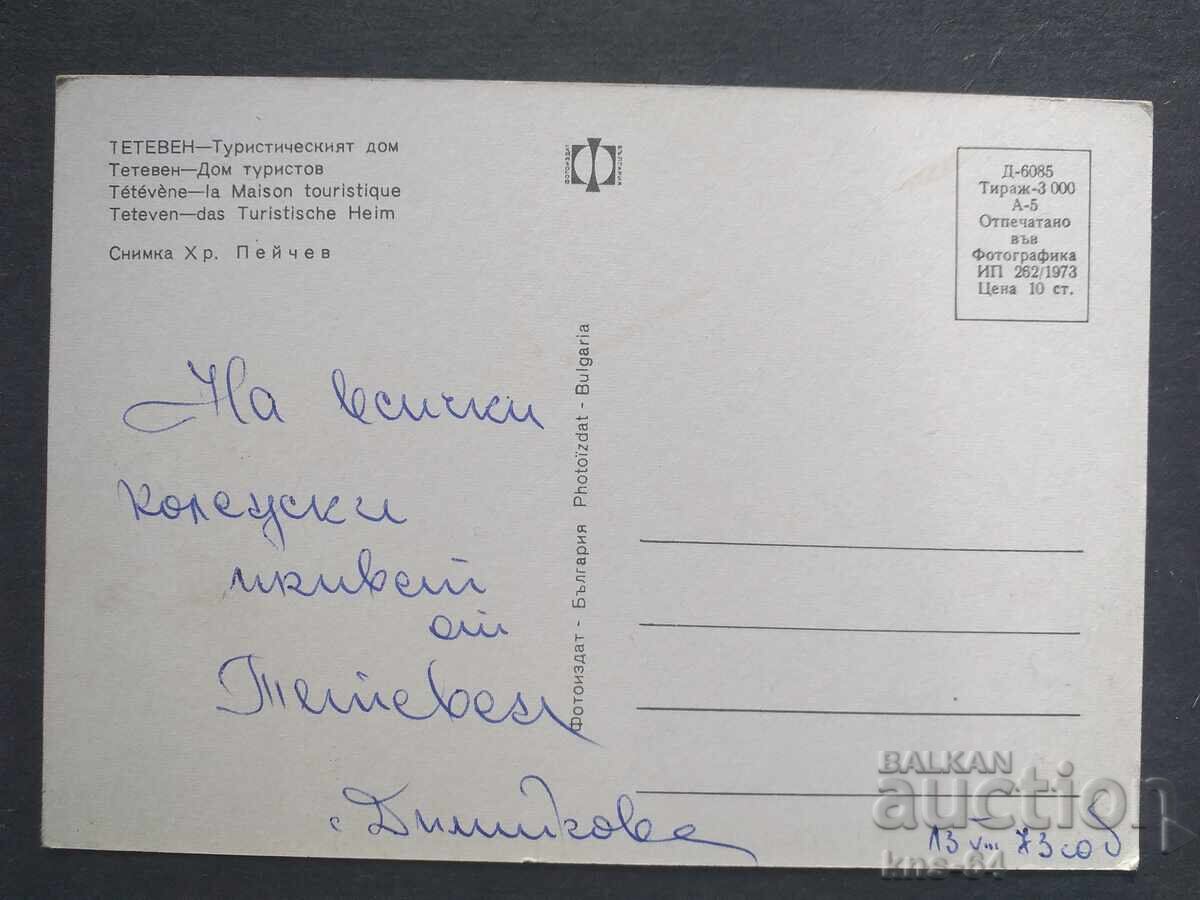 ТЕТЕВЕН—Туристическият дом
Тетевен—Дом туристов
Tétévène—la Maison touristique
Teteven—das Turistische Heim
Снимка Хр. Пейчев
ФОТОИЗДАТ
БЪЛГАРИЯ
Д-6085
Тираж-3 000
А-5
Отпечатано
във
Фотографика
ИП 262/1973
Цена 10 ст.
Фотоиздат - България Photoïzdat - Bulgaria
На всички
колежки
привет
от
Тетевен
13 VIII 73
BALKAN
auction
kns-64